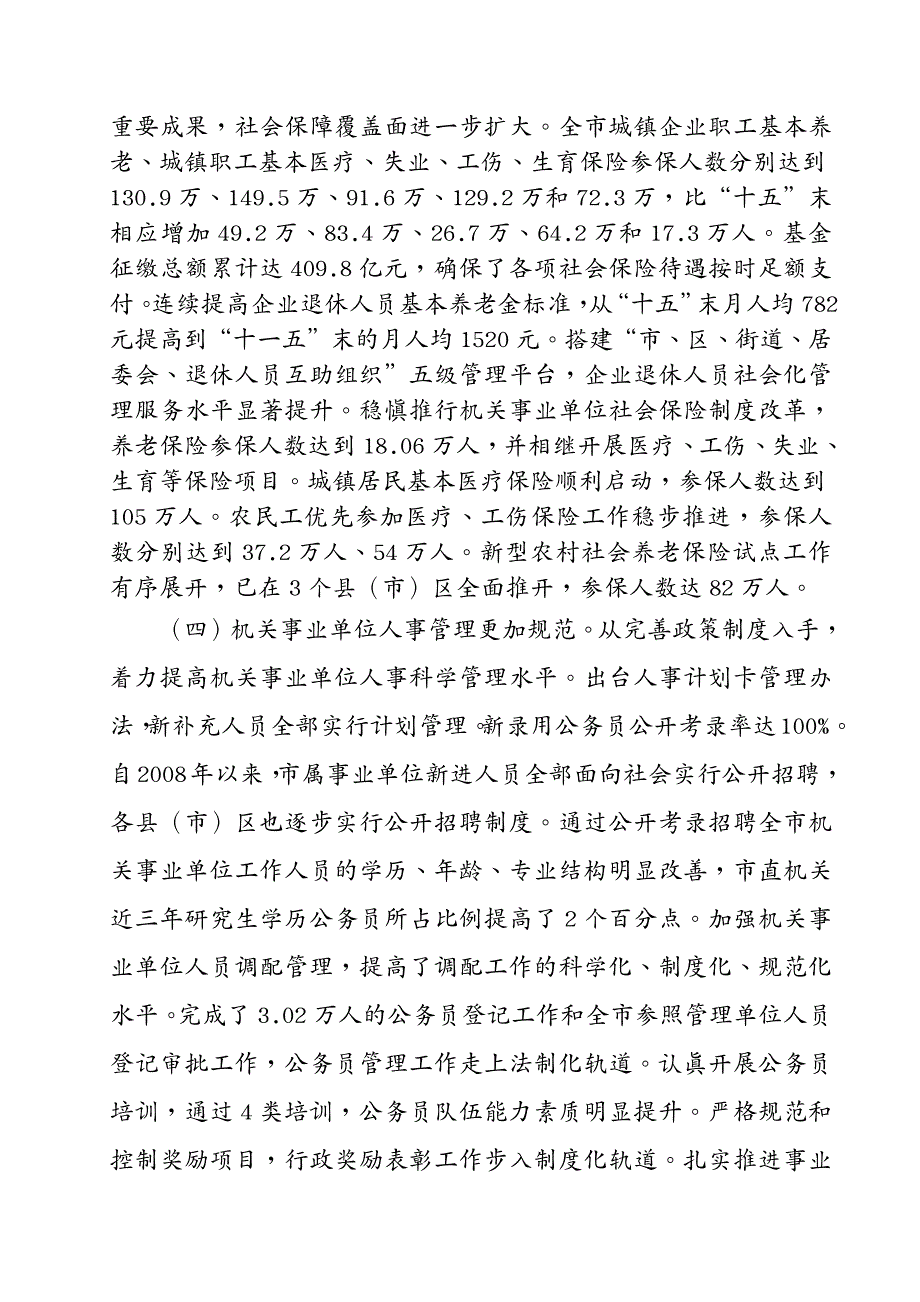 重要成果，社会保障覆盖面进一步扩大。全市城镇企业职工基本养
老、城镇职工基本医疗、失业、工伤、生育保险参保人数分别达到
130.9 万、149.5 万、91.6 万、129.2 万和 72.3 万，比“十五”末
相应增加 49.2 万、83.4 万、26.7 万、64.2 万和 17.3 万人。基金
征缴总额累计达 409.8 亿元，确保了各项社会保险待遇按时足额支
付。连续提高企业退休人员基本养老金标准，从“十五”末月人均 782
元提高到“十一五”末的月人均 1520 元。搭建“市、区、街道、居
委会、退休人员互助组织”五级管理平台，企业退休人员社会化管
理服务水平显著提升。稳慎推行机关事业单位社会保险制度改革，
养老保险参保人数达到 18.06 万人，并相继开展医疗、工伤、失业、
生育等保险项目。城镇居民基本医疗保险顺利启动，参保人数达到
105 万人。农民工优先参加医疗、工伤保险工作稳步推进，参保人
数分别达到 37.2 万人、54 万人。新型农村社会养老保险试点工作
有序展开，已在 3 个县（市）区全面推开，参保人数达 82 万人。
（四）机关事业单位人事管理更加规范。从完善政策制度入手，
着力提高机关事业单位人事科学管理水平。出台人事计划卡管理办
法，新补充人员全部实行计划管理。新录用公务员公开考录率达 100%。
自 2008 年以来，市属事业单位新进人员全部面向社会实行公开招聘，
各县（市）区也逐步实行公开招聘制度。通过公开考录招聘全市机
关事业单位工作人员的学历、年龄、专业结构明显改善，市直机关
近三年研究生学历公务员所占比例提高了 2 个百分点。加强机关事
业单位人员调配管理，提高了调配工作的科学化、制度化、规范化
水平。完成了 3.02 万人的公务员登记工作和全市参照管理单位人员
登记审批工作，公务员管理工作走上法制化轨道。认真开展公务员
培训，通过 4 类培训，公务员队伍能力素质明显提升。严格规范和
控制奖励项目，行政奖励表彰工作步入制度化轨道。扎实推进事业